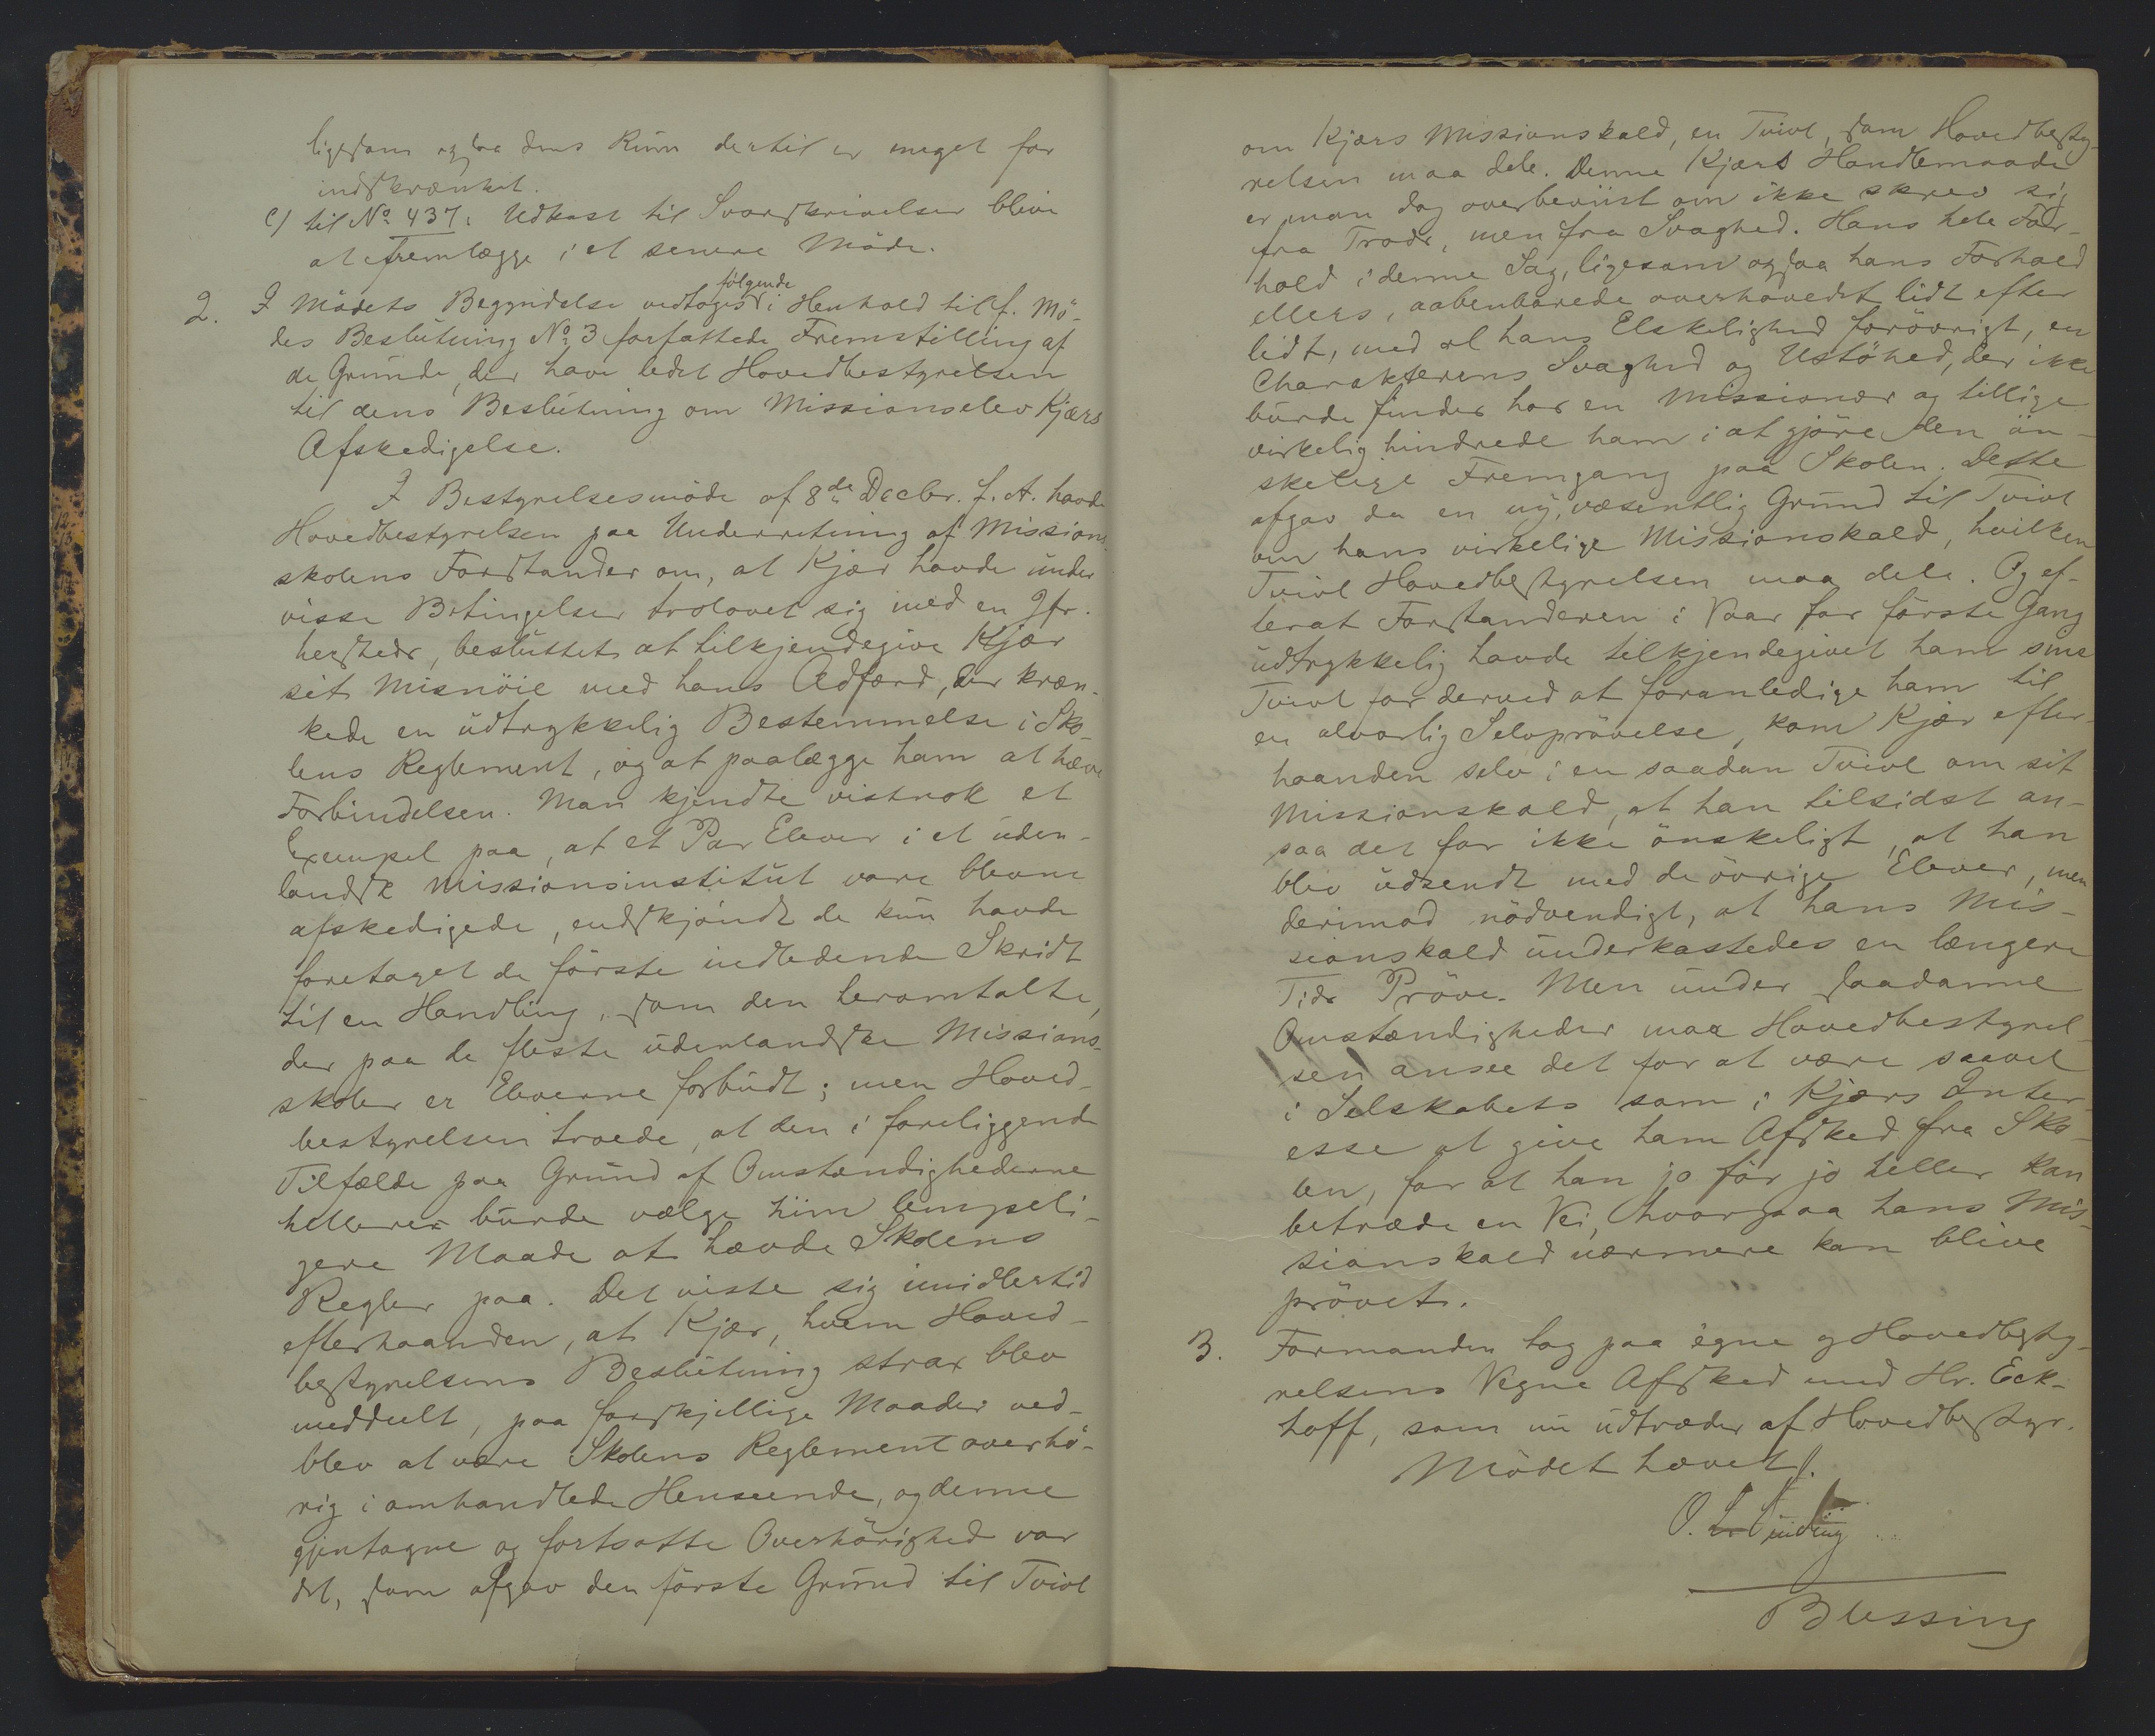 ligesom ogsaa dens Rum dertil er meget for
indskrænket.
c) til No 437. Udkast til Svarskrivelser blive
at fremlægge i et senere Møde.
2. I Mödets Begyndelse vedtoges følgende i Henhold til f. Mö-
des Beslutning No 3 forfattede Fremstilling af
de Grunde, der have ledet Hovedbestyrelsen
til dens Beslutning om Missionselev Kjærs
Afskedigelse.
I Bestyrelsesmöde af 8de Decbr. f. A. havde
Hovedbestyrelsen paa Underretning af Missions-
skolens Forstander om, at Kjær havde under
visse Betingelser trolovet sig med en Jfr.
hersteds, besluttet at tilkjendegive Kjær
sit Misnöie med hans Adfærd, der kræn-
kede en udtrykkelig Bestemmelse i Sko-
lens Reglement, og at paalægge ham at hæve
Forbindelsen. Man kjendte vistnok et
Exempel paa, at et Par Elever i et uden-
landsk Missionsinstitut vare blevne
afskedigede, endskjöndt de kun havde
foretaget de förste indledende Skridt
til en Handling, som den heromtalte,
der paa de fleste udenlandske Missions-
skoler er Eleverne forbudt; men Hoved-
bestyrelsen troede, at den i foreliggende
Tilfælde paa Grund af Omstændighederne
hellere burde vælge hiin lempeli-
gere Maade at hævde Skolens
Regler paa. Det viste sig imidlertid
efterhaanden, at Kjær, hvem Hoved-
bestyrelsens Beslutning strax blev
meddeelt, paa forskjellige Maader ved-
blev at være Skolens Reglement overhö-
rig i omhandlede Henseende, og denne
gjentagne og fortsatte Overhörighed var
det, som afgav den förste Grund til Tvivl
om Kjærs Missionskald, en Tvivl, som Hovedbesty-
relsen maa dele. Denne Kjærs Handlemaade
er man dog overbeviist om ikke skrev sig
fra Trods, men fra Svaghed. Hans hele For-
hold i denne Sag, ligesom ogsaa hans Forhold
ellers, aabenbarede overhovedet lidt efter
lidt, med al hans Elskelighed forövrigt, en
Charakterens Svaghed og Ustöhed, der ikke
burde findes hos en Missionær og tillige
virkelig hindrede ham i at gjöre den ön-
skelige Fremgang paa Skolen. Dette
afgav da en ny, væsentlig Grund til Tvivl
om hans virkelige Missionskald, hvilken
Tvivl Hovedbestyrelsen maa dele. Og ef-
terat Forstanderen i Vaar for förste Gang
udtrykkelig havde tilkjendegivet ham sine
Tvivl for derved at foranledige ham til
en alvorlig Selvprövelse, kom Kjær efter-
haanden selv i en saadan Tvivl om sit
Missionskald, at han tilsidst an-
saa det for ikke önskeligt, at han
blev udsendt med de övrige Elever, men
derimod nödvendigt, at hans Mis-
sionskald underkastedes en længere
Tids Pröve. Men under saadanne
Omstændigheder maa Hovedbestyrel-
sen ansee det for at være saavel
i Selskabets som i Kjærs Inter-
esse at give ham Afsked fra Sko-
len, for at han jo för jo heller kan
betræde en Vei, hvorpaa hans Mis-
sionskald nærmere kan blive
prövet.
3. Formanden tog paa egne og Hovedbesty-
relsens Vegne Afsked med Hr. Eck-
hoff, som nu udtræder af Hovedbestyr.
Mödet hævet.
O. L.
Blessing